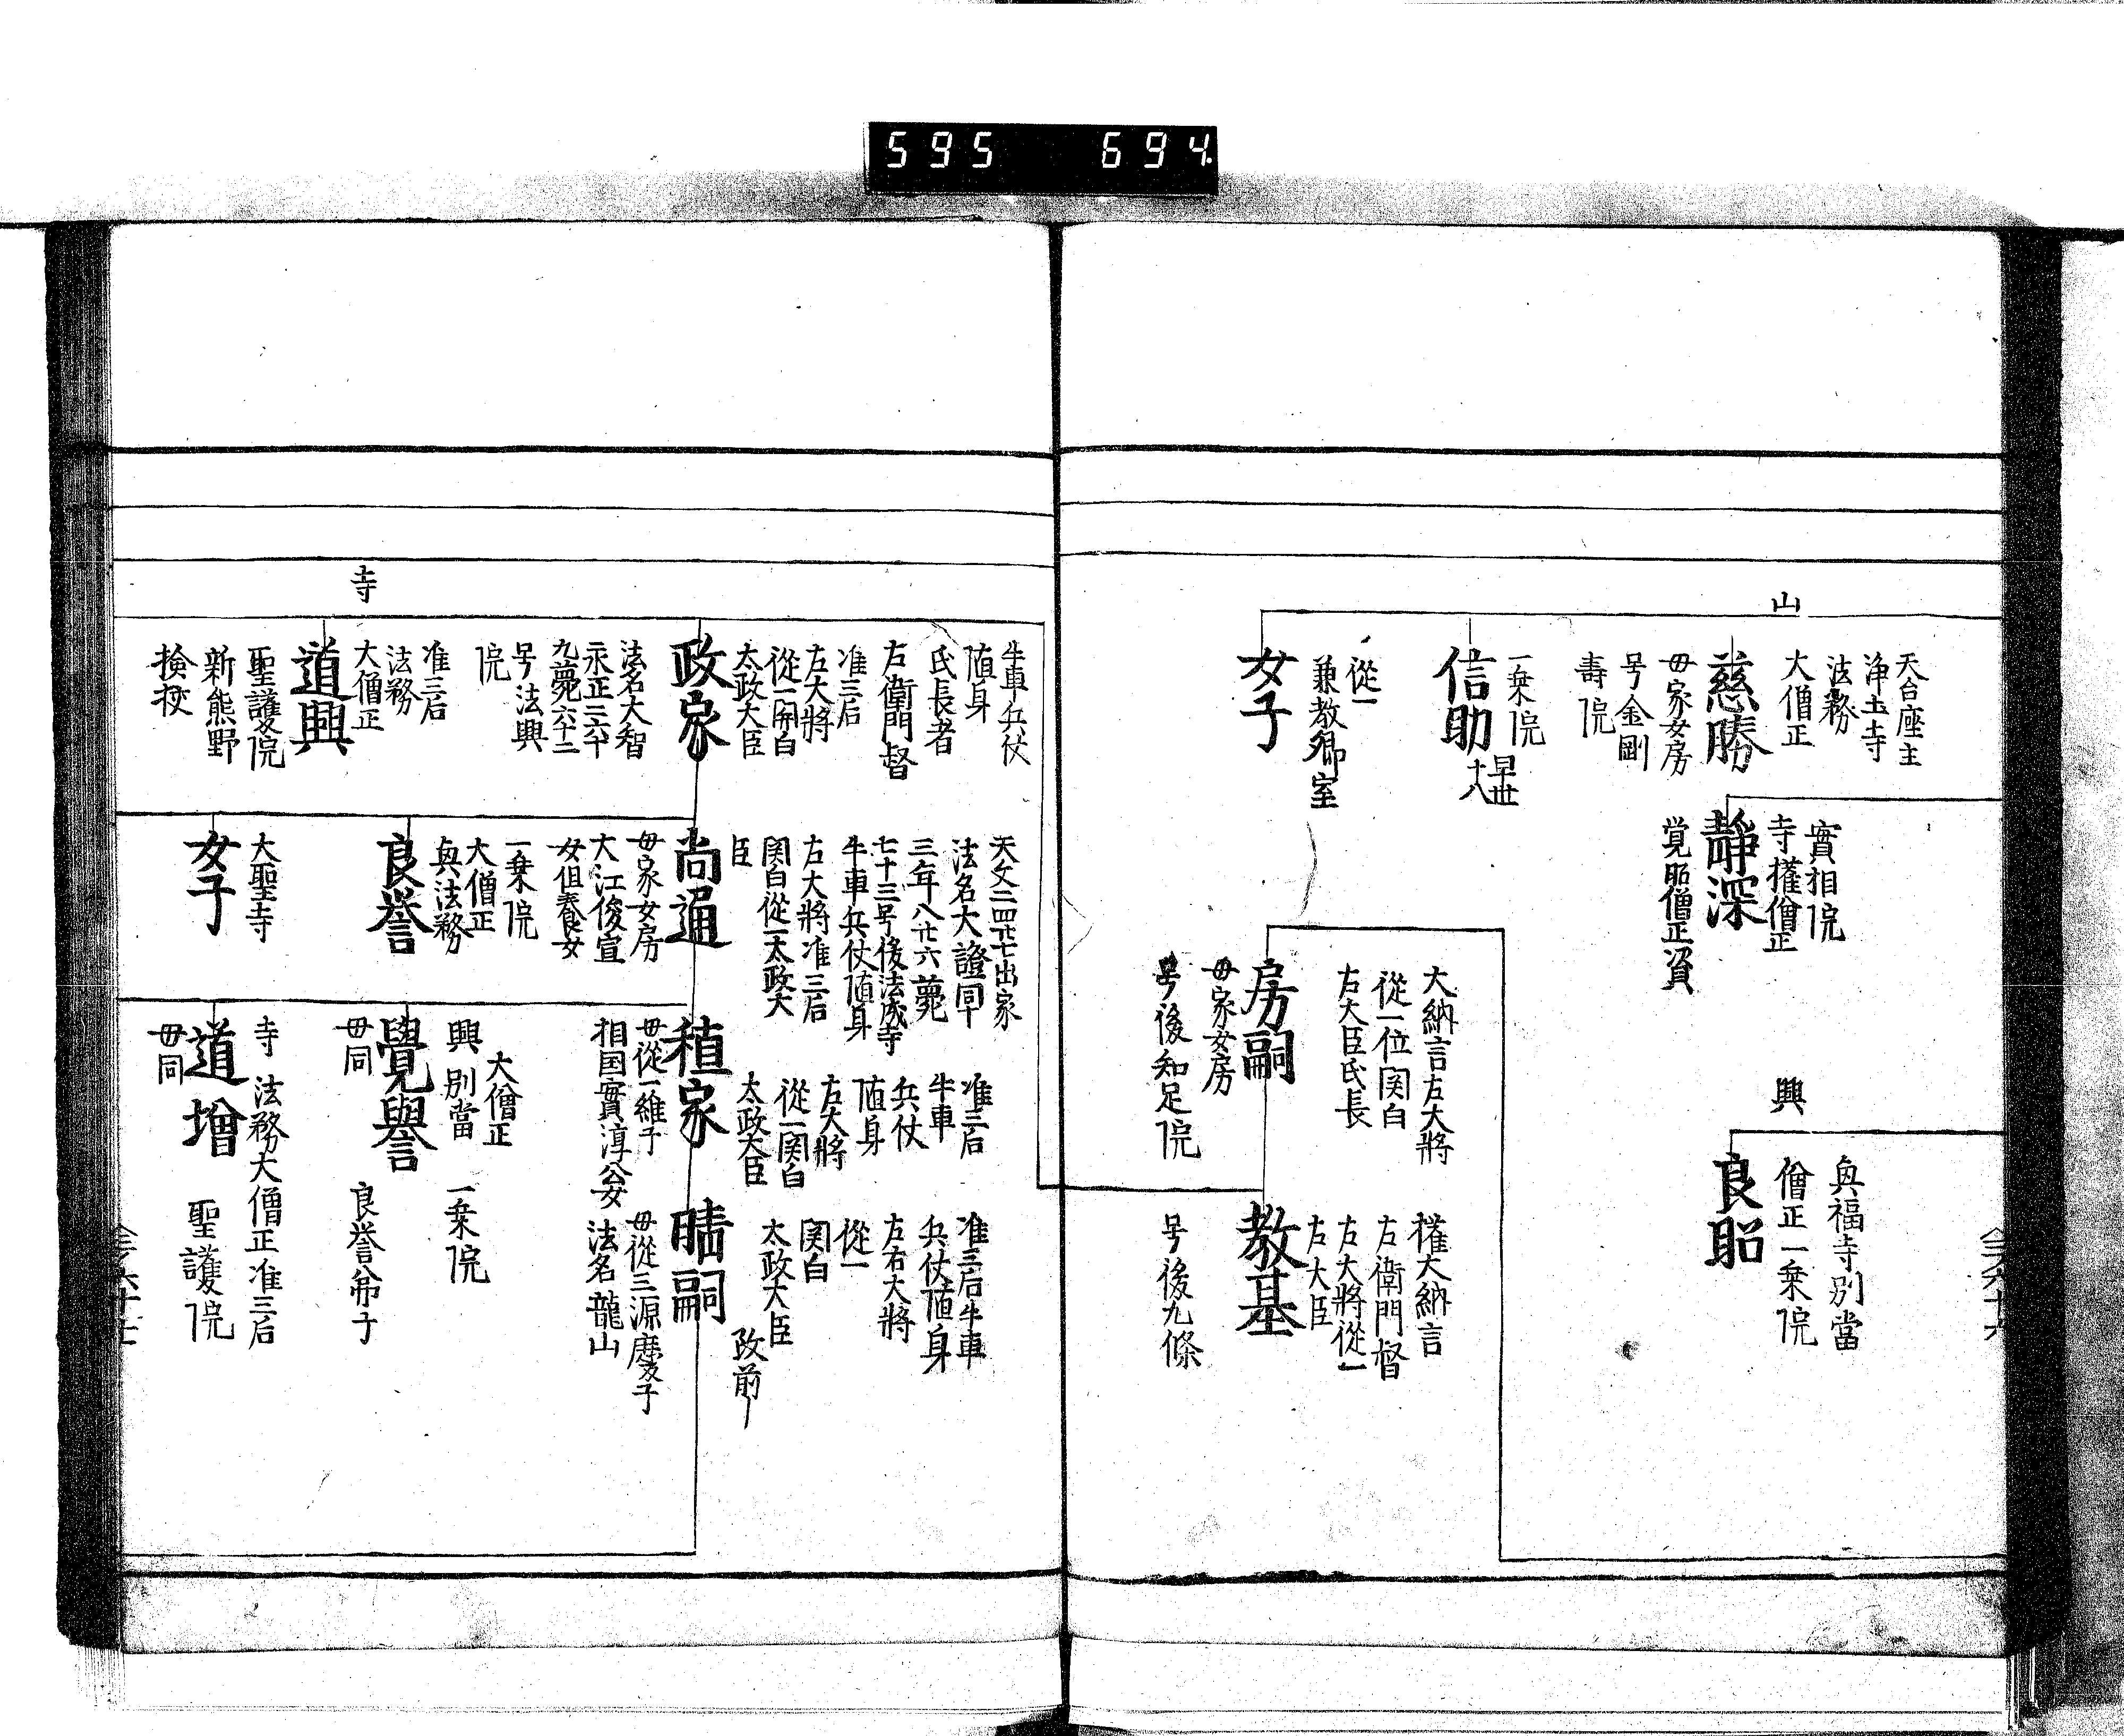 595 694
山
天台座主
浄土寺
法務
大僧正
慈勝
毋家女房
号金剛
壽院
一乗院
信助
早世
十八
從一
兼教卿室
女子
實相院
寺權僧正
静深
覚昭僧正資
興
興福寺別當
僧正一乗院
良昭
大納言左大將
從一位関白
左大臣氏長
房嗣
毋家女房
号後知足院
權大納言
左衛門督
左大將從一
左大臣
教基
号後九條
牛車兵仗
随身
氏長者
右衛門督
准三后
左大將
從一関白
太政大臣
政家
法名大智
永正二六十
九薨六十二
号法興
院
寺
准三后
法務
大僧正
道興
聖護院
新熊野
検校
天文二四廿七出家
法名大證同十
三年八廿六薨
七十三号後法成寺
牛車兵仗随身
右大將准三后
関白從一太政大
臣
尚通
毋家女房
大江俊宣
女俎養女
一乗院
大僧正
興法務
良誉
大聖寺
女子
准三后
牛車
兵仗
随身
左大將
從一関白
太政大臣
稙家
毋從一維子
相国實淳公女
大僧正
興別當 一乗院
覺譽
毋同
良誉弟子
寺 法務大僧正准三后
道増
毋同
聖護院
准三后牛車
兵仗随身
左右大將
從一
関白
太政大臣
政前
晴嗣
毋從三源慶子
法名龍山